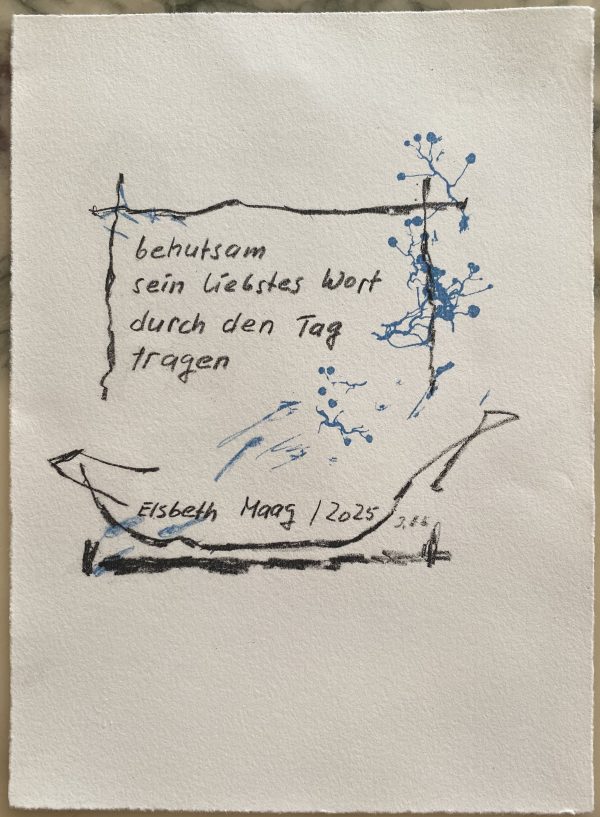 behutsam
sein liebstes Wort
durch den Tag
tragen
Elsbeth Maag / 2025